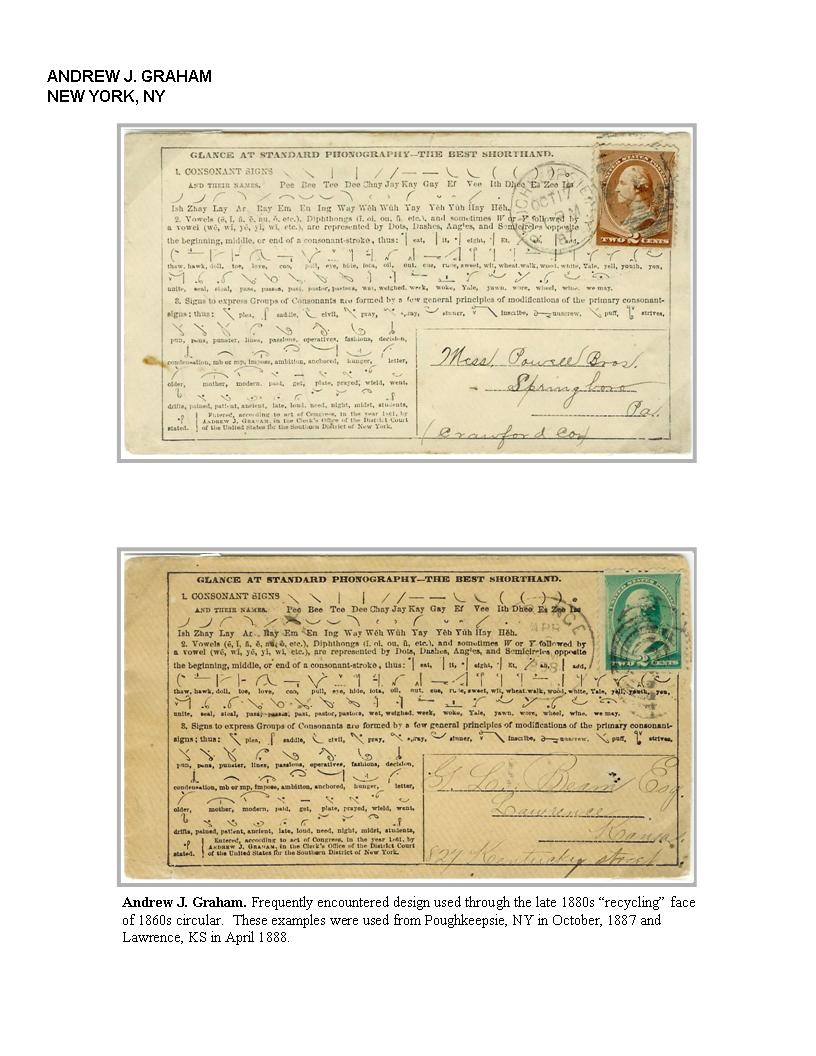 ANDREW J. GRAHAM
NEW YORK, NY
GLANCE AT STANDARD PHONOGRAPHY—THE BEST SHORTHAND.
1. CONSONANT SIGNS
AND THEIR NAMES. Pee Bee Tee Dee Chay Jay Kay Gay Ef Vee Ith Dhee Es Zee Iss
Ish Zhay Lay Ar Ray Em En Ing Way Wĕh Wŭh Yay Yĕh Yŭh Hay Hĕh.
2. Vowels (ē, ĭ, ā, ĕ, au, ŏ, etc.), Diphthongs (ī, oi, ou, ū, etc.), and sometimes W or Y followed by
a vowel (wē, wĭ, yē, yĭ, wī, etc.), are represented by Dots, Dashes, Angles, and Semicircles opposite
the beginning, middle, or end of a consonant-stroke, thus: eat, it, eight, Et, add,
thaw, hawk, doll, toe, love, coo, pull, eye, hide, iota, oil, out, cue, rude, sweet, wit, wheat, walk, wool, white, Yale, yell, youth, yon,
unite, seal, steal, pass, passes, past, pastor, pastors, was, weighed, week, woke, Yale, yawn, wore, wheel, wine, we may.
3. Signs to express Groups of Consonants are formed by a few general principles of modifications of the primary consonant-
signs; thus: plea, saddle, civil, pray, spray, sinner, inscribe, unscrew, puff, strives,
pun, pens, punster, lines, passions, operatives, fashions, decision,
condensation, mb or mp, impose, ambition, anchored, hunger, letter,
older, mother, modern, paid, get, plate, prayed, wield, went,
drifts, pained, patient, ancient, late, loud, need, night, midst, students,
stated.
Entered, according to act of Congress, in the year 1861, by
ANDREW J. GRAHAM, in the Clerk's Office of the District Court
of the United States for the Southern District of New York.
OCT 17
TWO 2 CENTS
Mess. Powell Bros.
Springboro
Pa.
(Crawford Co)
GLANCE AT STANDARD PHONOGRAPHY—THE BEST SHORTHAND.
1. CONSONANT SIGNS
AND THEIR NAMES. Pee Bee Tee Dee Chay Jay Kay Gay Ef Vee Ith Dhee Es Zee Iss
Ish Zhay Lay Ar Ray Em En Ing Way Wĕh Wŭh Yay Yĕh Yŭh Hay Hĕh.
2. Vowels (ē, ĭ, ā, ĕ, au, ŏ, etc.), Diphthongs (ī, oi, ou, ū, etc.), and sometimes W or Y followed by
a vowel (wē, wĭ, yē, yĭ, wī, etc.), are represented by Dots, Dashes, Angles, and Semicircles opposite
the beginning, middle, or end of a consonant-stroke, thus: eat, it, eight, Et, add,
thaw, hawk, doll, toe, love, coo, pull, eye, hide, iota, oil, out, cue, rude, sweet, wit, wheat, walk, wool, white, Yale, yell, youth, yon,
unite, seal, steal, pass, passes, past, pastor, pastors, was, weighed, week, woke, Yale, yawn, wore, wheel, wine, we may.
3. Signs to express Groups of Consonants are formed by a few general principles of modifications of the primary consonant-
signs; thus: plea, saddle, civil, pray, spray, sinner, inscribe, unscrew, puff, strives,
pun, pens, punster, lines, passions, operatives, fashions, decision,
condensation, mb or mp, impose, ambition, anchored, hunger, letter,
older, mother, modern, paid, get, plate, prayed, wield, went,
drifts, pained, patient, ancient, late, loud, need, night, midst, students,
stated.
Entered, according to act of Congress, in the year 1861, by
ANDREW J. GRAHAM, in the Clerk's Office of the District Court
of the United States for the Southern District of New York.
APR
TWO 2 CENTS
Bean Esq.
Lawrence
Kansas.
827 Kentucky street
Andrew J. Graham. Frequently encountered design used through the late 1880s “recycling” face
of 1860s circular. These examples were used from Poughkeepsie, NY in October, 1887 and
Lawrence, KS in April 1888.